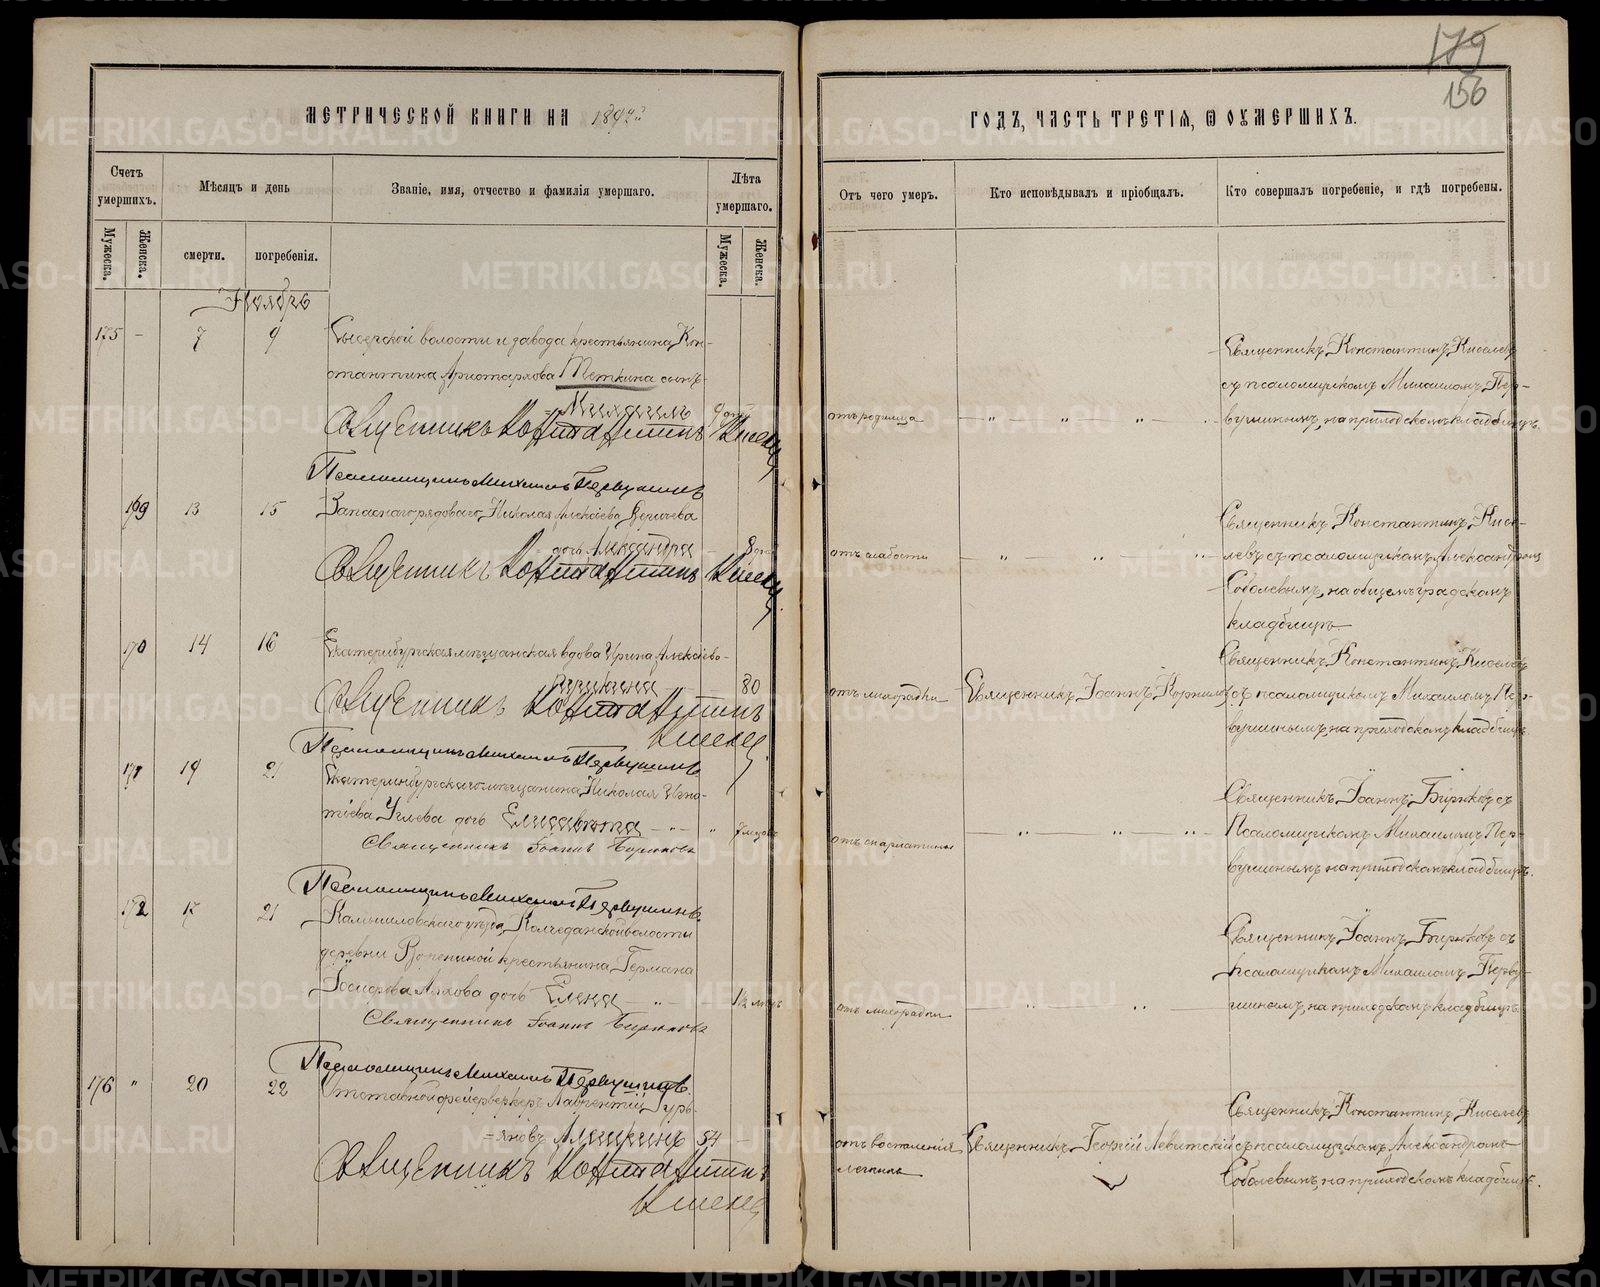 179
156
МЕТРИЧЕСКОЙ КНИГИ НА
ГОДЪ, ЧАСТЬ ТРЕТІЯ, Ѿ ОУМЕРШИХЪ.
Счетъ умершихъ.
Мѣсяцъ и день
Званіе, имя, отчество и фамилія умершаго.
Лѣта умершаго.
Отъ чего умеръ.
Кто исповѣдывалъ и пріобщалъ.
Кто совершалъ погребеніе, и гдѣ погребены.
Мужеска.
Женска.
смерти.
погребенія.
Мужеска.
Женска.
Ноябрь
175 - 7 9 Сысертской волости и завода крестьянина Кон-
стантина Аристархова Теткина сынъ
Михаилъ
отъ родимца
Священникъ Константинъ Киселевъ
съ псаломщикомъ Михаиломъ Пер-
вушинымъ, на приходскомъ кладбищѣ.
Священникъ Константинъ Киселевъ
Псаломщикъ Михаилъ Первушинъ
169 13 15 Запаснаго рядоваго Николая Алексіева
дочь Александра
отъ слабости
Священникъ Константинъ Кисе-
левъ съ псаломщикомъ Александромъ
Соболевымъ, на общемъ градскомъ
кладбищѣ
Священникъ Константинъ Киселевъ
170 14 16 Екатеринбургская мѣщанская вдова Ирина Алексіева
80
отъ лихорадки
Священникъ Іоаннъ Корнилов
Священникъ Константинъ Киселевъ
съ псаломщикомъ Михаиломъ Пер-
вушинымъ, на приходскомъ кладбищѣ
Священникъ Константинъ
Киселевъ
Псаломщикъ Михаилъ Первушинъ
171 19 21 Екатеринбургскаго мѣщанина Николая Игна-
тіева Углева дочь Елисавета - " - " 7 мѣсяц
отъ скарлатины
Священникъ Іоаннъ Бирюковъ съ
Псаломщикомъ Михаиломъ Пер-
вушинымъ на приходскомъ кладбищѣ.
Священникъ Іоаннъ Бирюковъ
Псаломщикъ Михаилъ Первушинъ
172 17 21 Камышловскаго уѣзда, Колчеданской волости
деревни крестьянина Германа
Іосифова Ляхова дочь Елена - " -
отъ лихорадки
Священникъ Іоаннъ Бирюковъ съ
псаломщикомъ Михаиломъ Перву-
шиномъ, на приходскомъ кладбищѣ.
Священникъ Іоаннъ Бирюковъ
Псаломщикъ Михаилъ Первушинъ
176 " 20 22 Отставной фейерверкеръ Лаврентій Гурь-
яновъ Алешкинъ 54
отъ воспаленія
легкихъ
Священникъ Георгій Левитскій
Священникъ Константинъ Киселевъ
съ псаломщикомъ Александромъ
Соболевымъ, на приходскомъ кладбищѣ.
Священникъ Константинъ
Киселевъ
METRIKI.GASO-URAL.RU